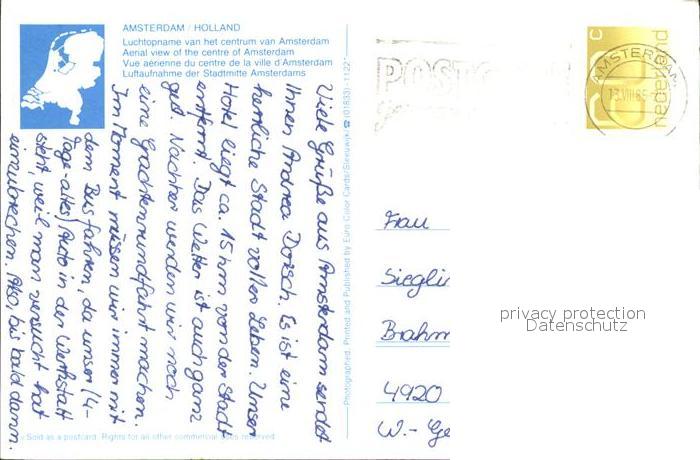 AMSTERDAM / HOLLAND
Luchtopname van het centrum van Amsterdam
Aerial view of the centre of Amsterdam
Vue aérienne du centre de la ville d'Amsterdam
Luftaufnahme der Stadtmitte Amsterdams
Viele Grüße aus Amsterdam sendet
Ihnen Andrea Dorsch. Es ist eine
herrliche Stadt voller Leben. Unser
Hotel liegt ca. 15 km von der Stadt
entfernt. Das Wetter ist auch ganz
gut. Nachher werden wir noch
eine Grachtenrundfahrt machen.
Im Moment müssen wir immer mit
dem Bus fahren, da unser 14-
Tage-altes Auto in der Werkstatt
steht, weil man versucht hat
einzubrechen. Also, bis bald dann.
Sold as a postcard. Rights for all other commercial uses reserved
Photographed, Printed and Published by Euro Color Cards/Sleeuwijk ☎ (01833) 1122*
POSTC
c
60
nederland
AMSTERDAM
13.VIII.85
Frau
Siegli
Brahm
4920
W.- Ge
privacy protection
Datenschutz